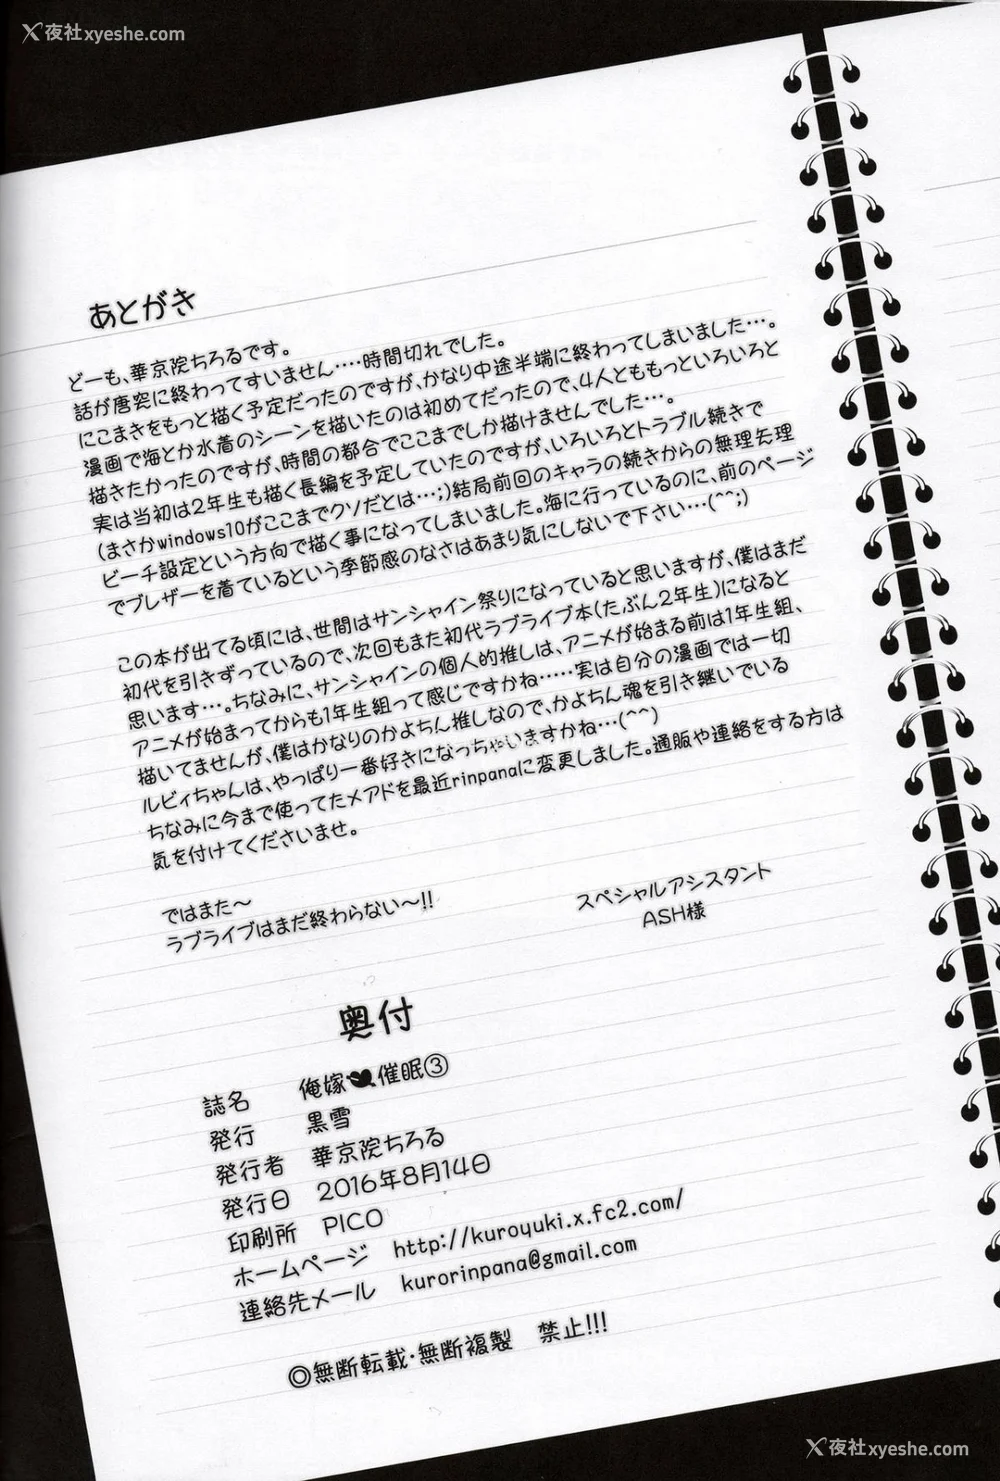 X夜社xyeshe.com
あとがき
どーも、華京院ちろるです。
話が唐突に終わってすいません‥‥時間切れでした。
にこまきをもっと描く予定だったのですが、かなり中途半端に終わってしまいました…。
漫画で海とか水着のシーンを描いたのは初めてだったので、4人とももっといろいろと
描きたかったのですが、時間の都合でここまでしか描けませんでした…。
実は当初は2年生も描く長編を予定していたのですが、いろいろとトラブル続きで
(まさかwindows10がここまでクソだとは…;)結局前回のキャラの続きからの無理矢理
ビーチ設定という方向で描く事になってしまいました。海に行っているのに、前のページ
でブレザーを着ているという季節感のなさはあまり気にしないで下さい…(^^;)
この本が出てる頃には、世間はサンシャイン祭りになっていると思いますが、僕はまだ
初代を引きずっているので、次回もまた初代ラブライブ本(たぶん2年生)になると
思います…。ちなみに、サンシャインの個人的推しは、アニメが始まる前は1年生組、
アニメが始まってからも1年生組って感じですかね……実は自分の漫画では一切
描いてませんが、僕はかなりのかよちん推しなので、かよちん魂を引き継いでいる
ルビィちゃんは、やっぱり一番好きになっちゃいますかね…(^^)
ちなみに今まで使ってたメアドを最近rinpanaに変更しました。通販や連絡をする方は
気を付けてくださいませ。
ではまた～
ラブライブはまだ終わらない～!!
スペシャルアシスタント
ASH様
奥付
誌名 俺嫁催眠③
発行 黒雪
発行者 華京院ちろる
発行日 2016年8月14日
印刷所 PICO
ホームページ http://kuroyuki.x.fc2.com/
連絡先メール kurorinpana@gmail.com
◎無断転載・無断複製 禁止!!!
X夜社xyeshe.com